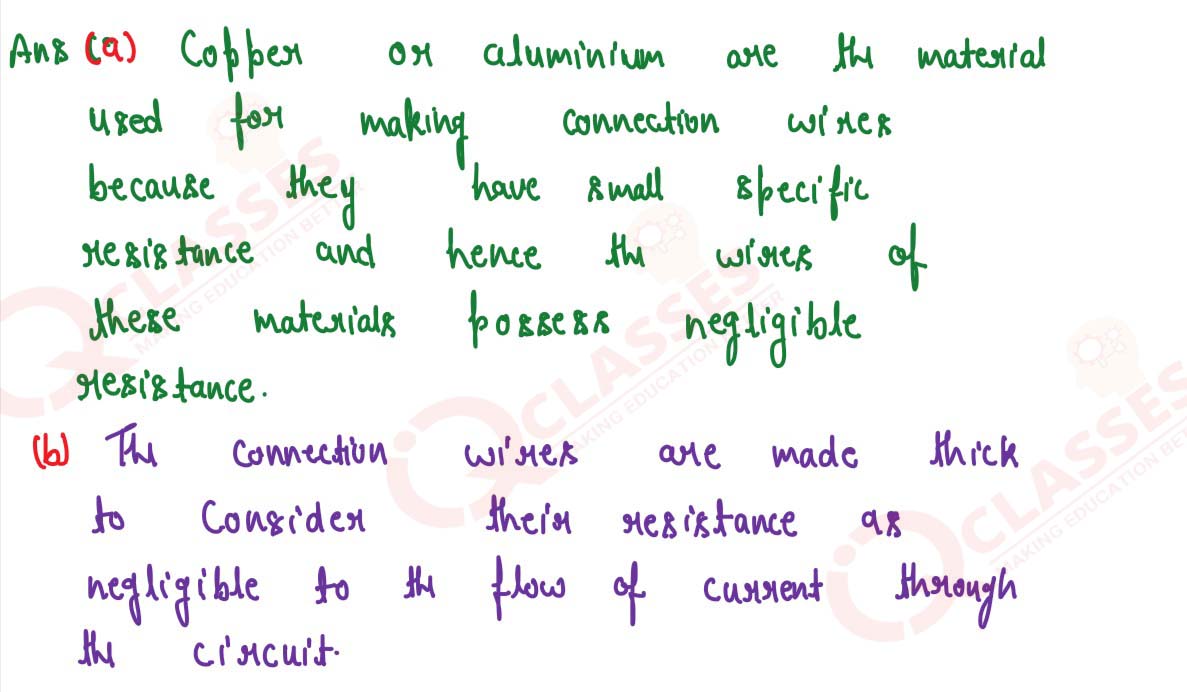 Ans (a) Copper or aluminium are the material
used for making connection wires
because they have small specific
resistance and hence the wires of
these materials possess negligible
resistance.
(b) The connection wires are made thick
to consider their resistance as
negligible to the flow of current through
the circuit.
CLASSES
MAKING EDUCATION BET
CLASSES
MAKING EDUCATION BETTER
CLASSES
MAKING EDUCATION BE